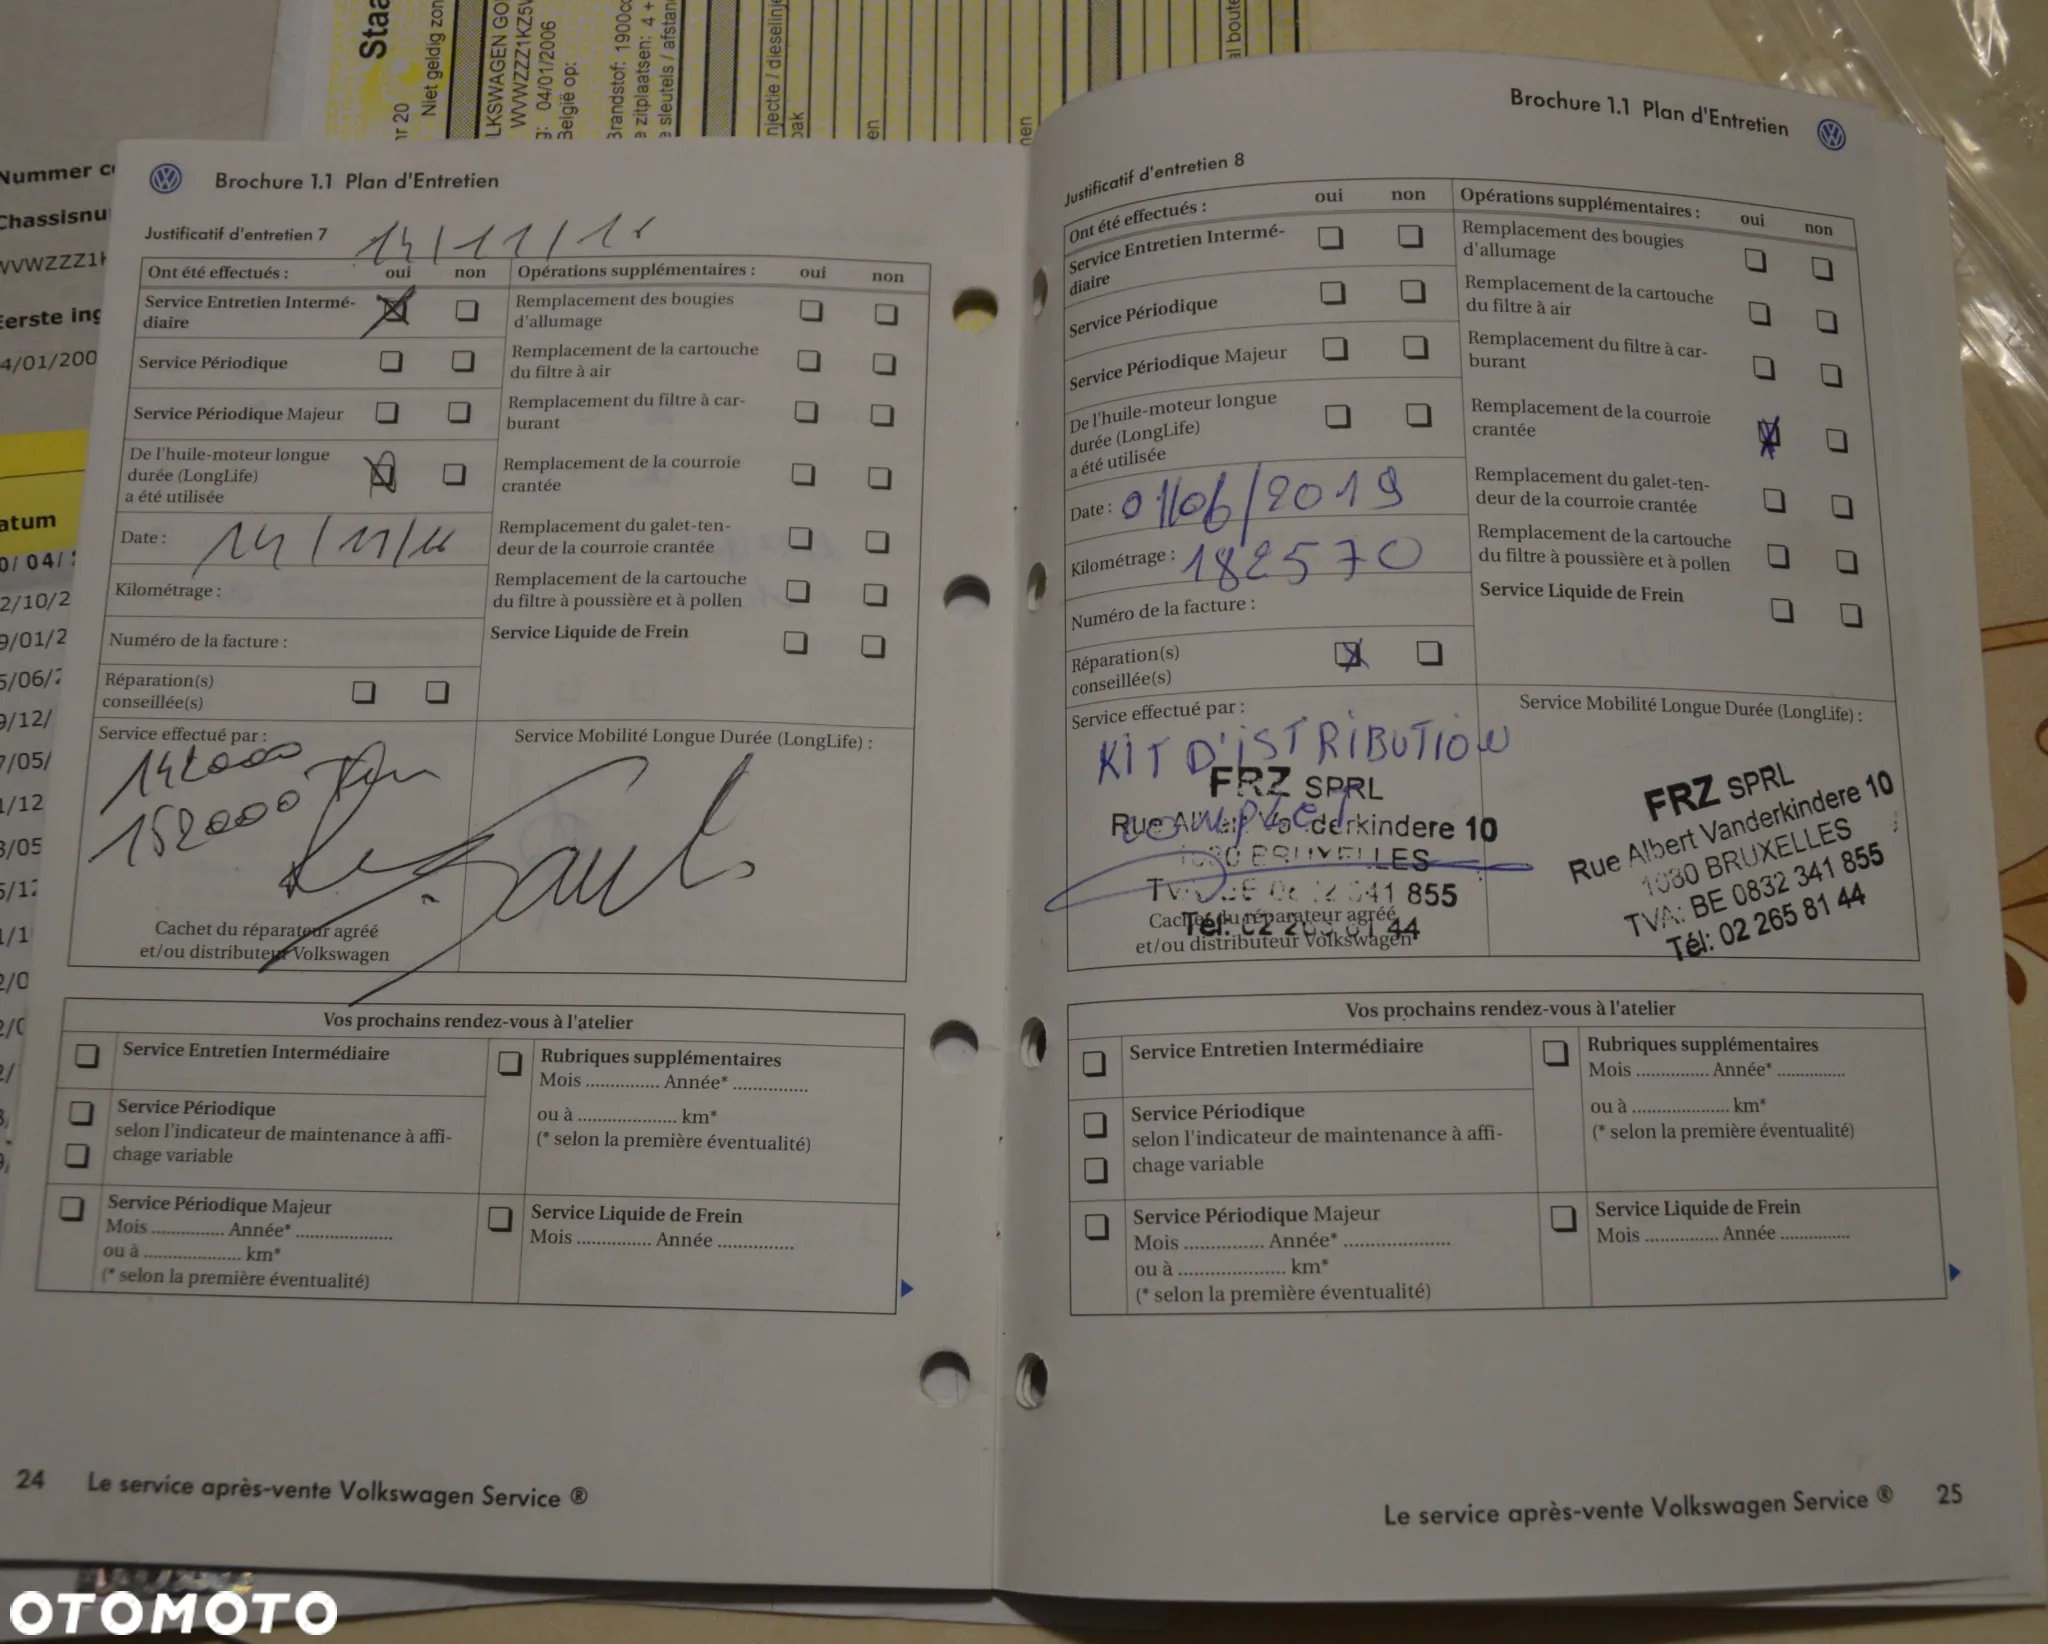 Staa
Niet geldig zon
LKSWAGEN GO
WVWZZZ1KZ5W
04/01/2006
België op:
Brandstof: 1900cc
e zitplaatsen: 4 +
e sleutels / afstan
njectie / dieselinje
bak
en
al boute
men
Nummer c
Chassisnu
WVWZZZ1K
Eerste ing
4/01/200
atum
0/ 04/
2/10/2
9/01/2
5/06/2
9/12/
7/05/
1/12
3/05
Brochure 1.1 Plan d'Entretien
Justificatif d'entretien 7
14/11/16
Ont été effectués : oui non Opérations supplémentaires : oui non
Service Entretien Intermé-
diaire
Remplacement des bougies
d'allumage
Service Périodique
Remplacement de la cartouche
du filtre à air
Service Périodique Majeur
Remplacement du filtre à car-
burant
De l'huile-moteur longue
durée (LongLife)
a été utilisée
Remplacement de la courroie
crantée
Date : 14/11/16
Remplacement du galet-ten-
deur de la courroie crantée
Kilométrage :
Remplacement de la cartouche
du filtre à poussière et à pollen
Numéro de la facture :
Service Liquide de Frein
Réparation(s)
conseillée(s)
Service effectué par :
142000
152000
Service Mobilité Longue Durée (LongLife) :
Cachet du réparateur agréé
et/ou distributeur Volkswagen
Vos prochains rendez-vous à l'atelier
Service Entretien Intermédiaire
Rubriques supplémentaires
Mois .............. Année* ..............
ou à .................... km*
(* selon la première éventualité)
Service Périodique
selon l'indicateur de maintenance à affi-
chage variable
Service Périodique Majeur
Mois .............. Année* ...................
ou à .................... km*
(* selon la première éventualité)
Service Liquide de Frein
Mois .............. Année ..............
24 Le service après-vente Volkswagen Service ®
Brochure 1.1 Plan d'Entretien
Justificatif d'entretien 8
Ont été effectués : oui non Opérations supplémentaires : oui non
Service Entretien Intermé-
diaire
Remplacement des bougies
d'allumage
Service Périodique
Remplacement de la cartouche
du filtre à air
Service Périodique Majeur
Remplacement du filtre à car-
burant
De l'huile-moteur longue
durée (LongLife)
a été utilisée
Remplacement de la courroie
crantée
Date : 01/06/2019
Remplacement du galet-ten-
deur de la courroie crantée
Kilométrage : 182570
Remplacement de la cartouche
du filtre à poussière et à pollen
Numéro de la facture :
Service Liquide de Frein
Réparation(s)
conseillée(s)
Service effectué par :
KIT D'ISTRIBUTION
complet
FRZ SPRL
Rue Albert Vanderkindere 10
1080 BRUXELLES
TVA: BE 0832 341 855
Tél: 02 265 81 44
Cachet du réparateur agréé
et/ou distributeur Volkswagen
Service Mobilité Longue Durée (LongLife) :
FRZ SPRL
Rue Albert Vanderkindere 10
1080 BRUXELLES
TVA: BE 0832 341 855
Tél: 02 265 81 44
Vos prochains rendez-vous à l'atelier
Service Entretien Intermédiaire
Rubriques supplémentaires
Mois .............. Année* ..............
ou à .................... km*
(* selon la première éventualité)
Service Périodique
selon l'indicateur de maintenance à affi-
chage variable
Service Périodique Majeur
Mois ............... Année* ....................
ou à ..................... km*
(* selon la première éventualité)
Service Liquide de Frein
Mois .............. Année .............
Le service après-vente Volkswagen Service ® 25
OTOMOTO